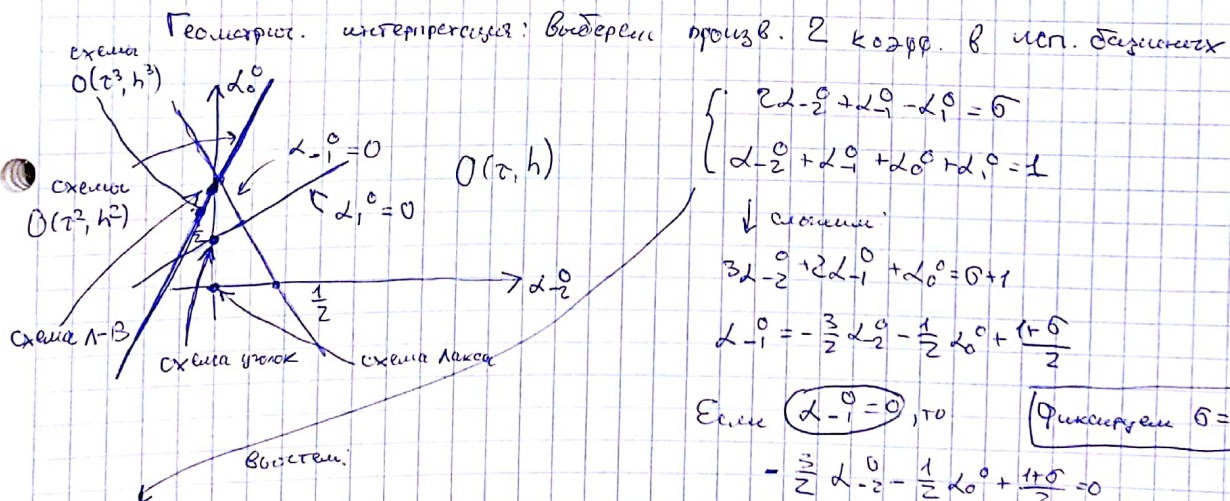 Геометрич. интерпретация: Выберем произв. 2 коэфф. в исп. базисных
схемы
O(τ³, h³)
α₀⁰
α₋₁⁰ = 0
α₁⁰ = 0
O(τ, h)
схемы
O(τ², h²)
α₋₂⁰
1/2
схема Л-В
схема уголок
схема Лакса
2α₋₂⁰ + α₋₁⁰ - α₁⁰ = σ
α₋₂⁰ + α₋₁⁰ + α₀⁰ + α₁⁰ = 1
↓ сложим:
3α₋₂⁰ + 2α₋₁⁰ + α₀⁰ = σ + 1
α₋₁⁰ = - 3/2 α₋₂⁰ - 1/2 α₀⁰ + (1+σ)/2
Если α₋₁⁰ = 0, то
Фиксируем σ =
- 3/2 α₋₂⁰ - 1/2 α₀⁰ + (1+σ)/2 = 0
вычтем: